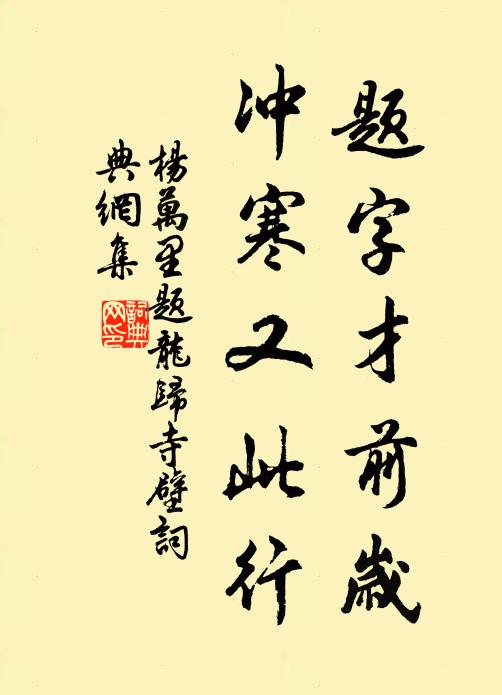 题字才前歲
冲寒又此行
楊萬里题龍歸寺壁詞
典網集
詞典
网印